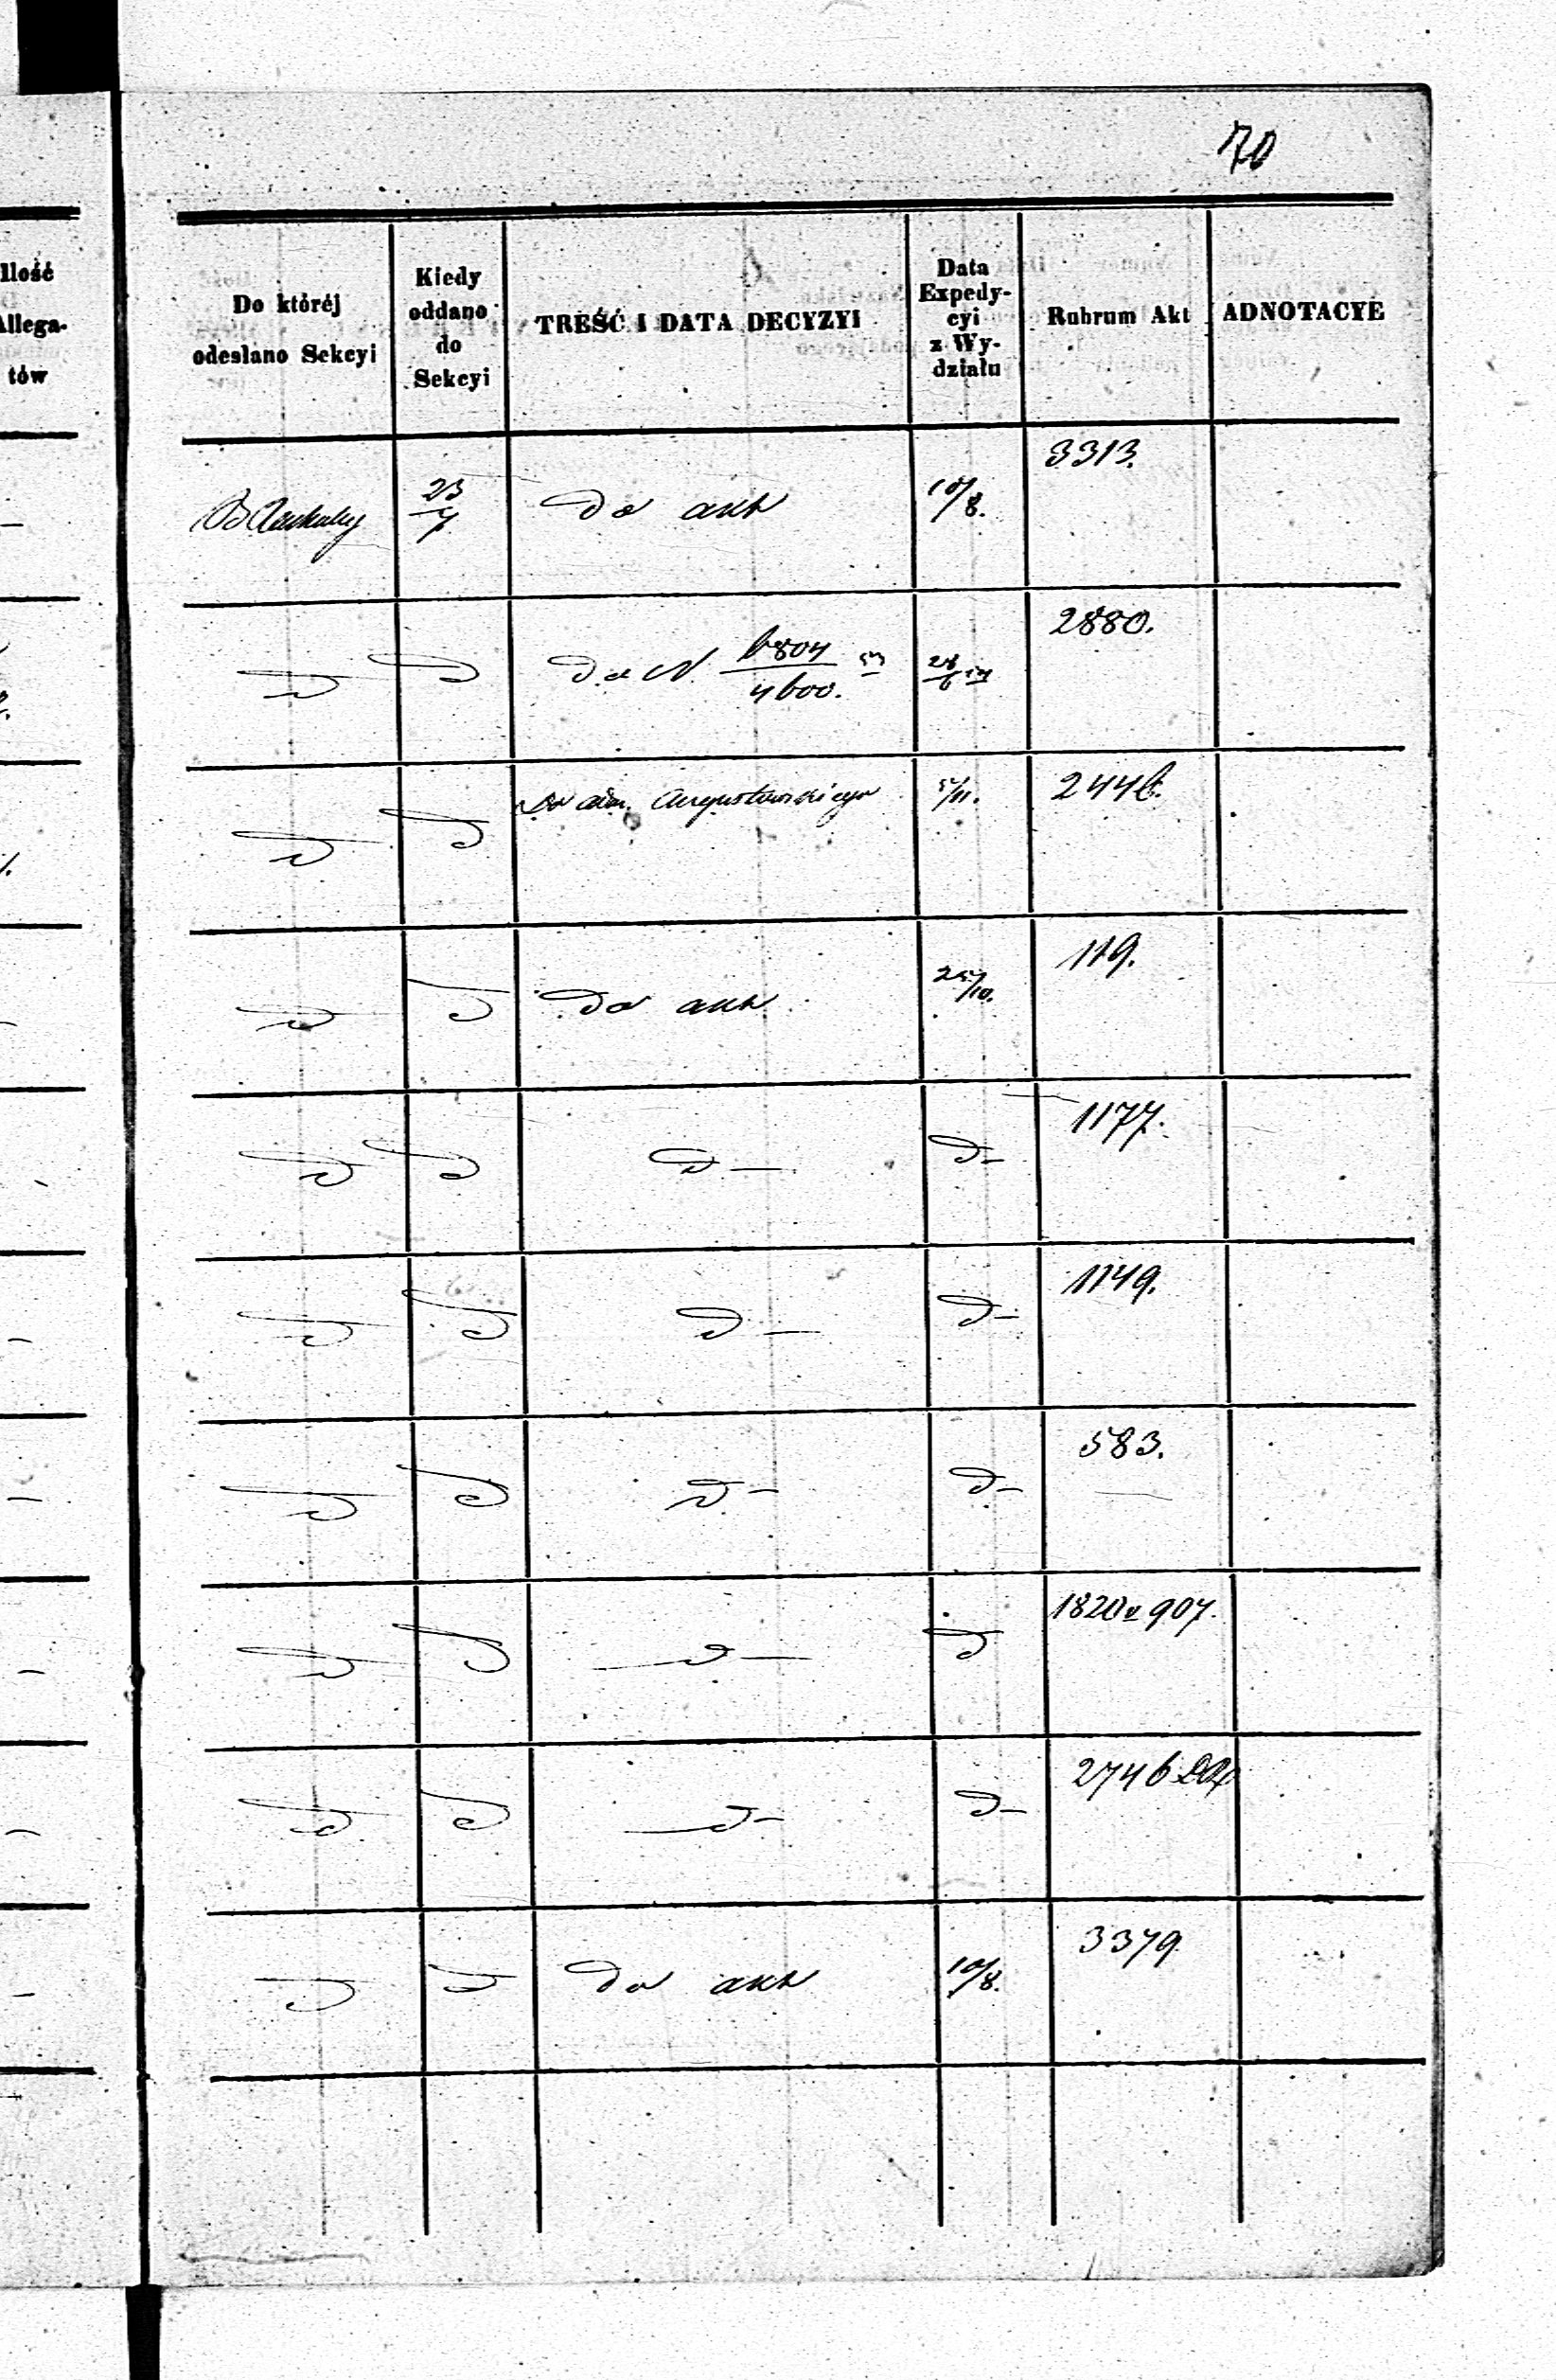 70
Ilość
Allega-
tów
Do któréj
odesłano Sekcyi
Kiedy
oddano
do
Sekcyi
TREŚĆ I DATA DECYZYI
Data
Expedy-
cyi
z Wy-
działu
Rubrum Akt
ADNOTACYE
23/7 Do akt 10/8. 3313.
Do N. 6804/4600. 2880.
Do adm. Augustowskiego 5/11. 2446.
Do akt 25/10. 119.
D D D — D — 1177.
D D D — D — 1149.
D D D — D — 583.
D D — D — D 1820 v 907.
D D — D — D — 2746
D D Do akt 10/8. 3379